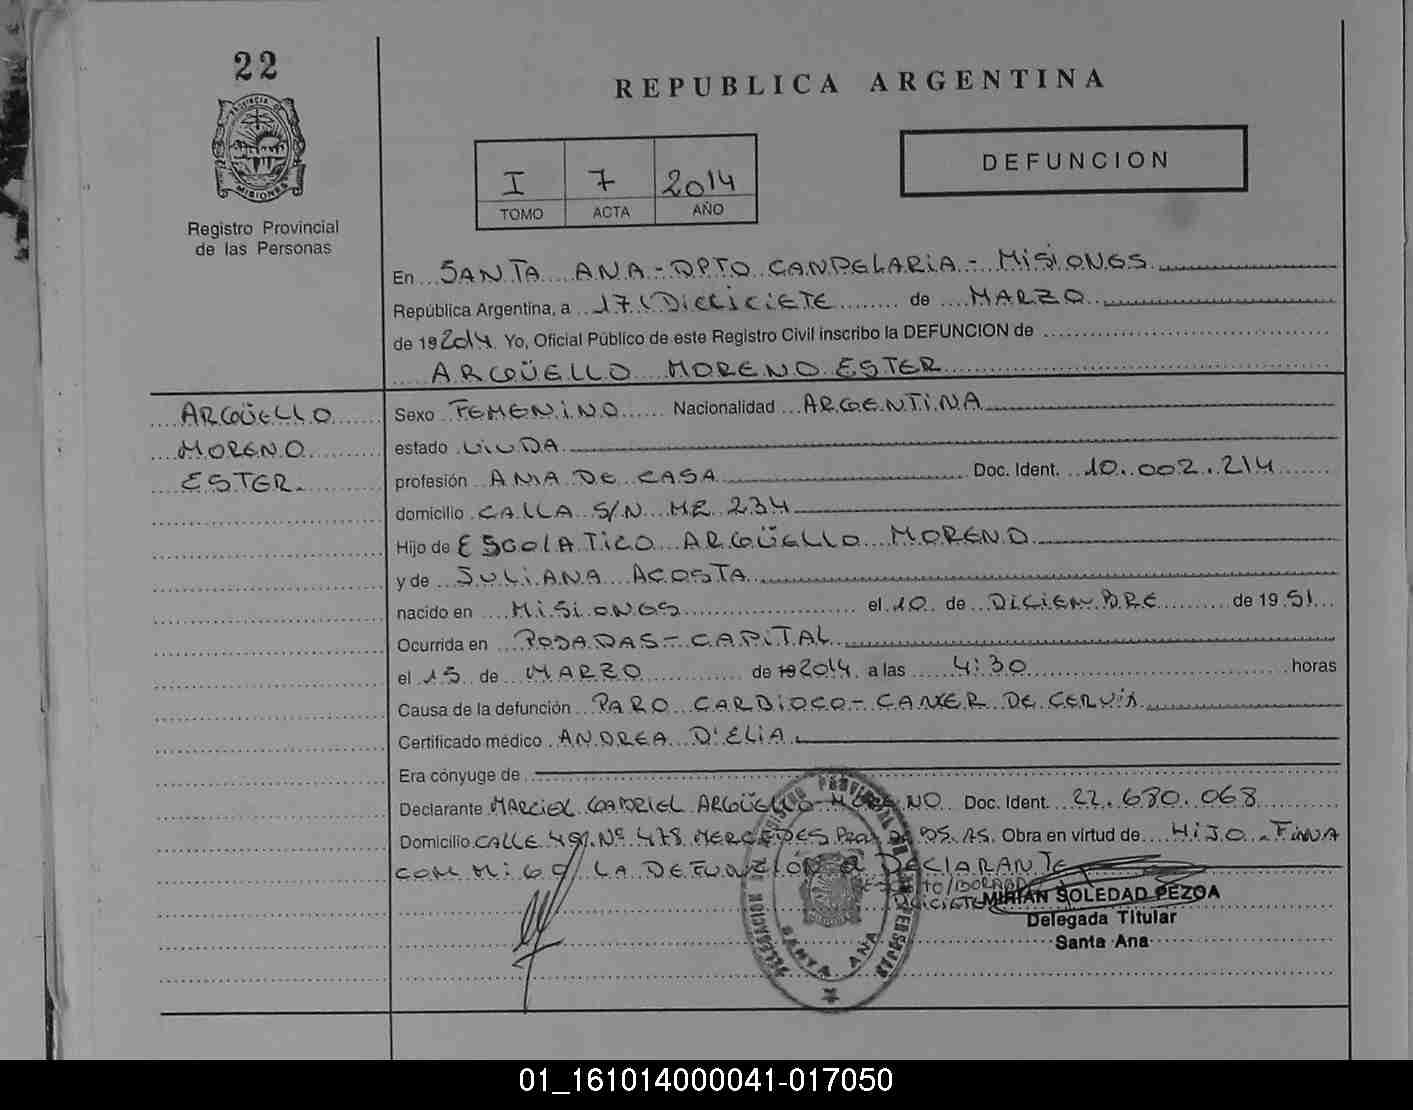 22
PROVINCIA DE
MISIONES
Registro Provincial
de las Personas
REPUBLICA ARGENTINA
I 7 2014
TOMO ACTA AÑO
DEFUNCION
En SANTA ANA - DPTO CANDELARIA - MISIONES
República Argentina, a 17 (DIECISIETE de MARZO
de 19 2014 Yo, Oficial Público de este Registro Civil inscribo la DEFUNCION de
ARGÜELLO MORENO ESTER
ARGÜELLO
MORENO
ESTER.
Sexo FEMENINO Nacionalidad ARGENTINA
estado VIUDA
profesión AMA DE CASA Doc. Ident. 10.002.214
domicilio CALLA S/N MZ 234
Hijo de ESCOLATICO ARGÜELLO MORENO
y de JULIANA ACOSTA
nacido en MISIONES el 10 de DICIEMBRE de 19 51
Ocurrida en POSADAS - CAPITAL
el 15 de MARZO de 19 2014 a las 4:30 horas
Causa de la defunción PARO CARDIOCO - CANCER DE CERVIX
Certificado médico ANDREA D'ELIA
Era cónyuge de
Declarante MARCIEL GABRIEL ARGÜELLO MORENO Doc. Ident. 22.680.068
Domicilio CALLE 491 Nº 478 MERCEDES BS. AS. Obra en virtud de HIJO - FIRMA
CON MI GO LA DEFUNCIÓN DECLARANTE
MIRIAN SOLEDAD PEZOA
Delegada Titular
Santa Ana
DELEGACION REGISTRO PROVINCIAL DE LAS PERSONAS
SANTA ANA
01_161014000041-017050